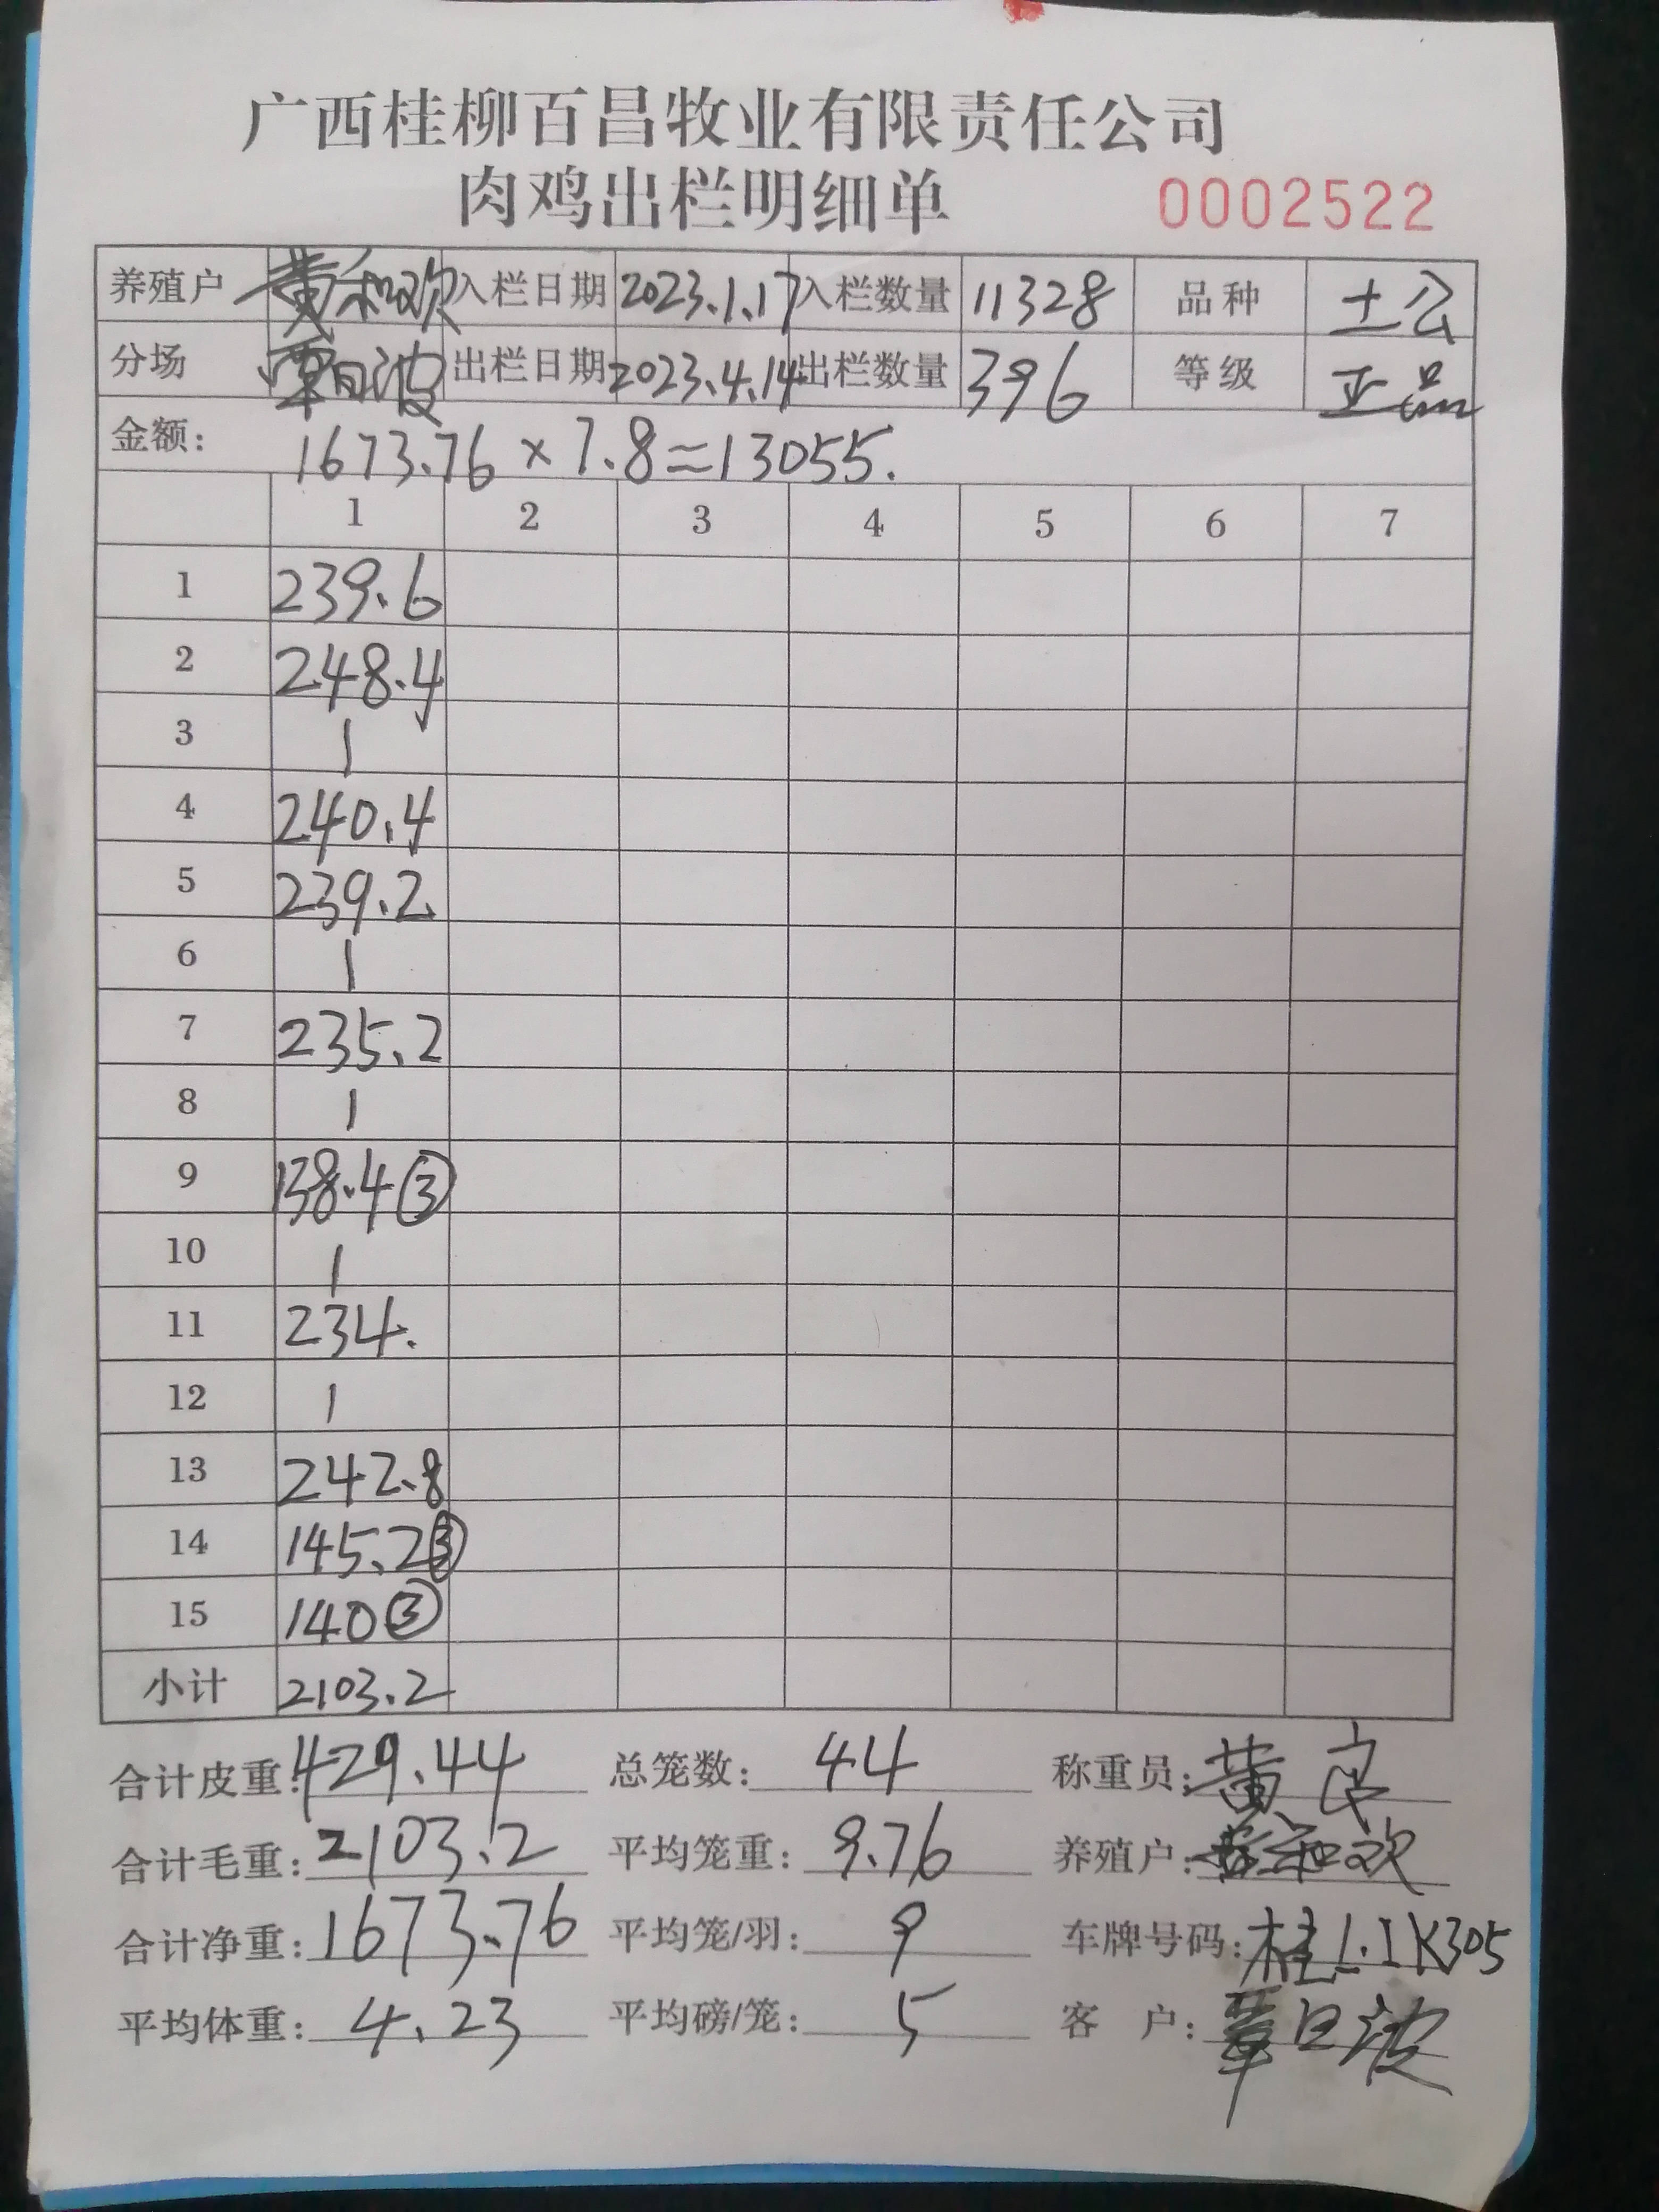 广西桂柳百昌牧业有限责任公司
肉鸡出栏明细单 0002522
养殖户 黄和欢 入栏日期 2023.1.17 入栏数量 11328 品种 土公
分场 覃日波 出栏日期 2023.4.14 出栏数量 396 等级 正品
金额: 1673.76 × 7.8≈13055.
1 2 3 4 5 6 7
1 239.6
2 248.4
3 1
4 240.4
5 239.2
6 1
7 235.2
8 1
9 138.4 ③
10 1
11 234.
12 1
13 242.8
14 145.2 ③
15 140 ③
小计 2103.2
合计皮重: 429.44 总笼数: 44 称重员: 黄良
合计毛重: 2103.2 平均笼重: 9.76 养殖户: 黄和欢
合计净重: 1673.76 平均笼/羽: 9 车牌号码: 桂L.1K305
平均体重: 4.23 平均磅/笼: 5 客 户: 覃日波